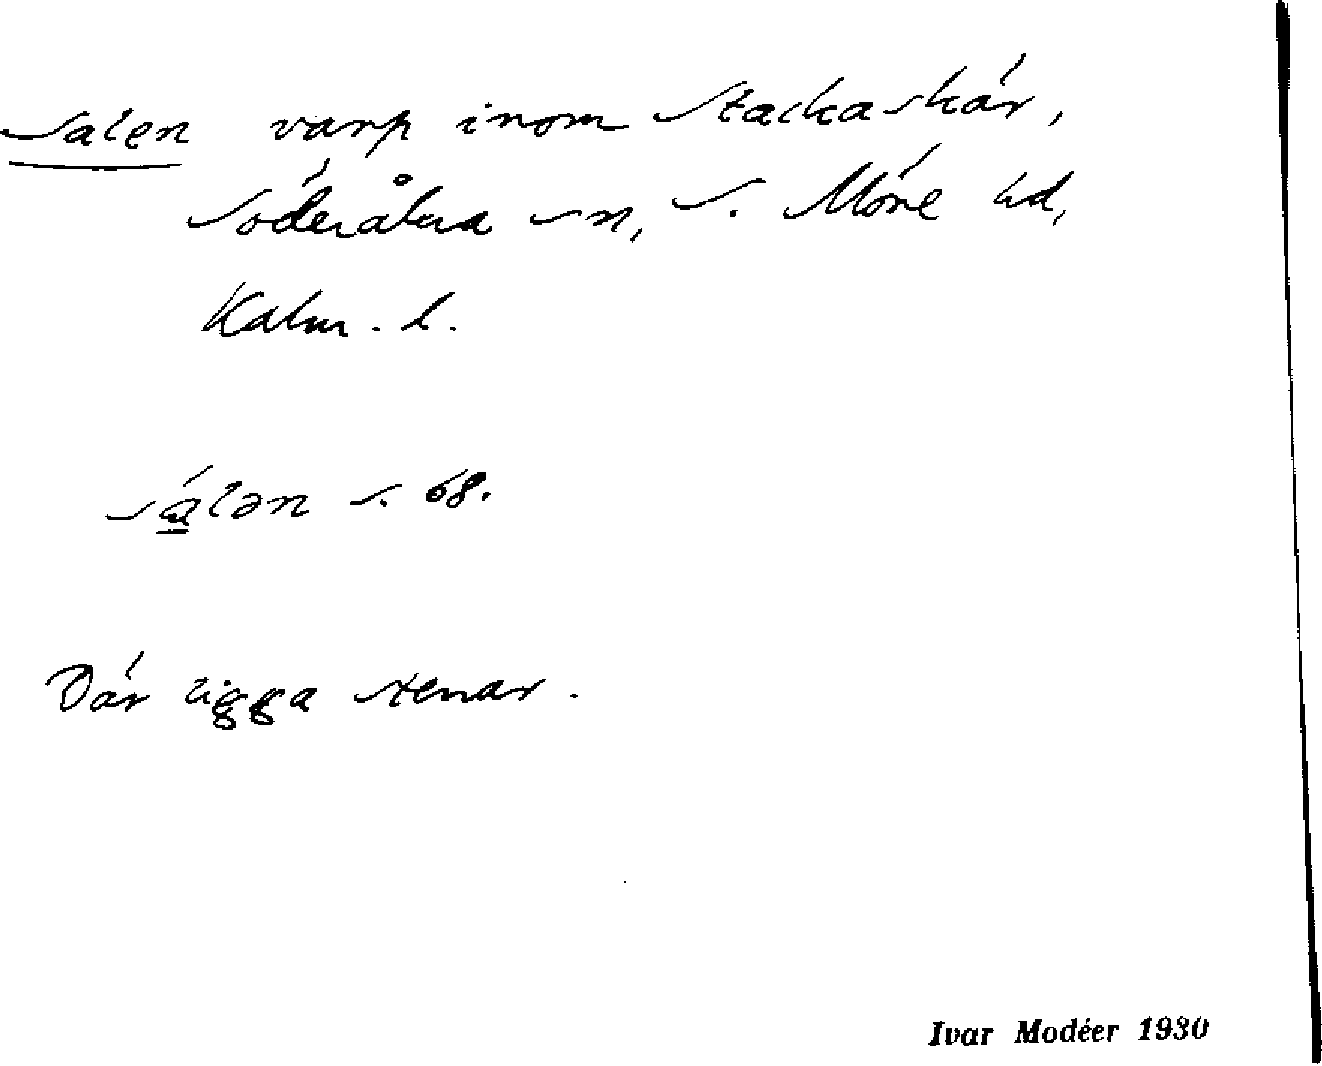 Salen varp inom Stackaskär,
Söderåkra sn, S. Möre hd,
Kalm. l.
sálən s. 68.
Där ligga stenar.
Ivar Modéer 1930